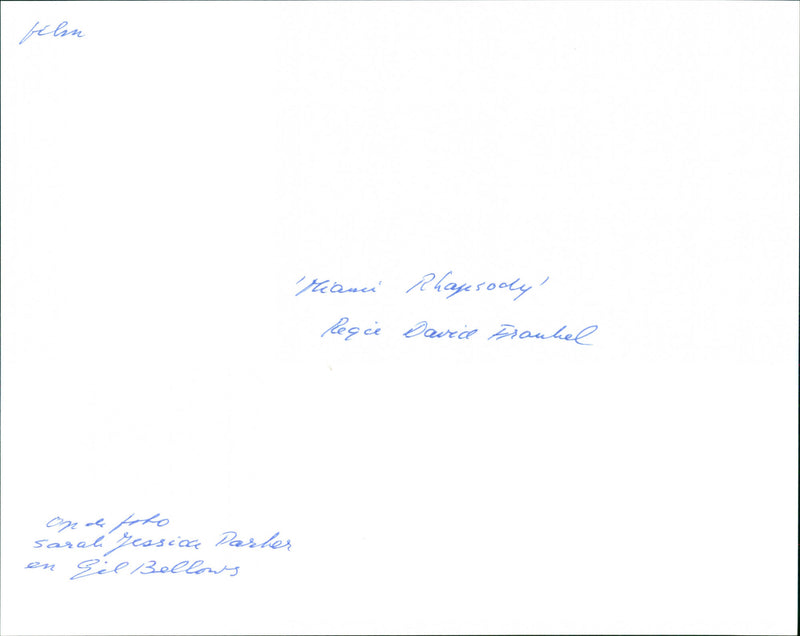 film
'Miami Rhapsody'
Regie David Frankel
op de foto
Sarah Jessica Parker
en Gil Bellows